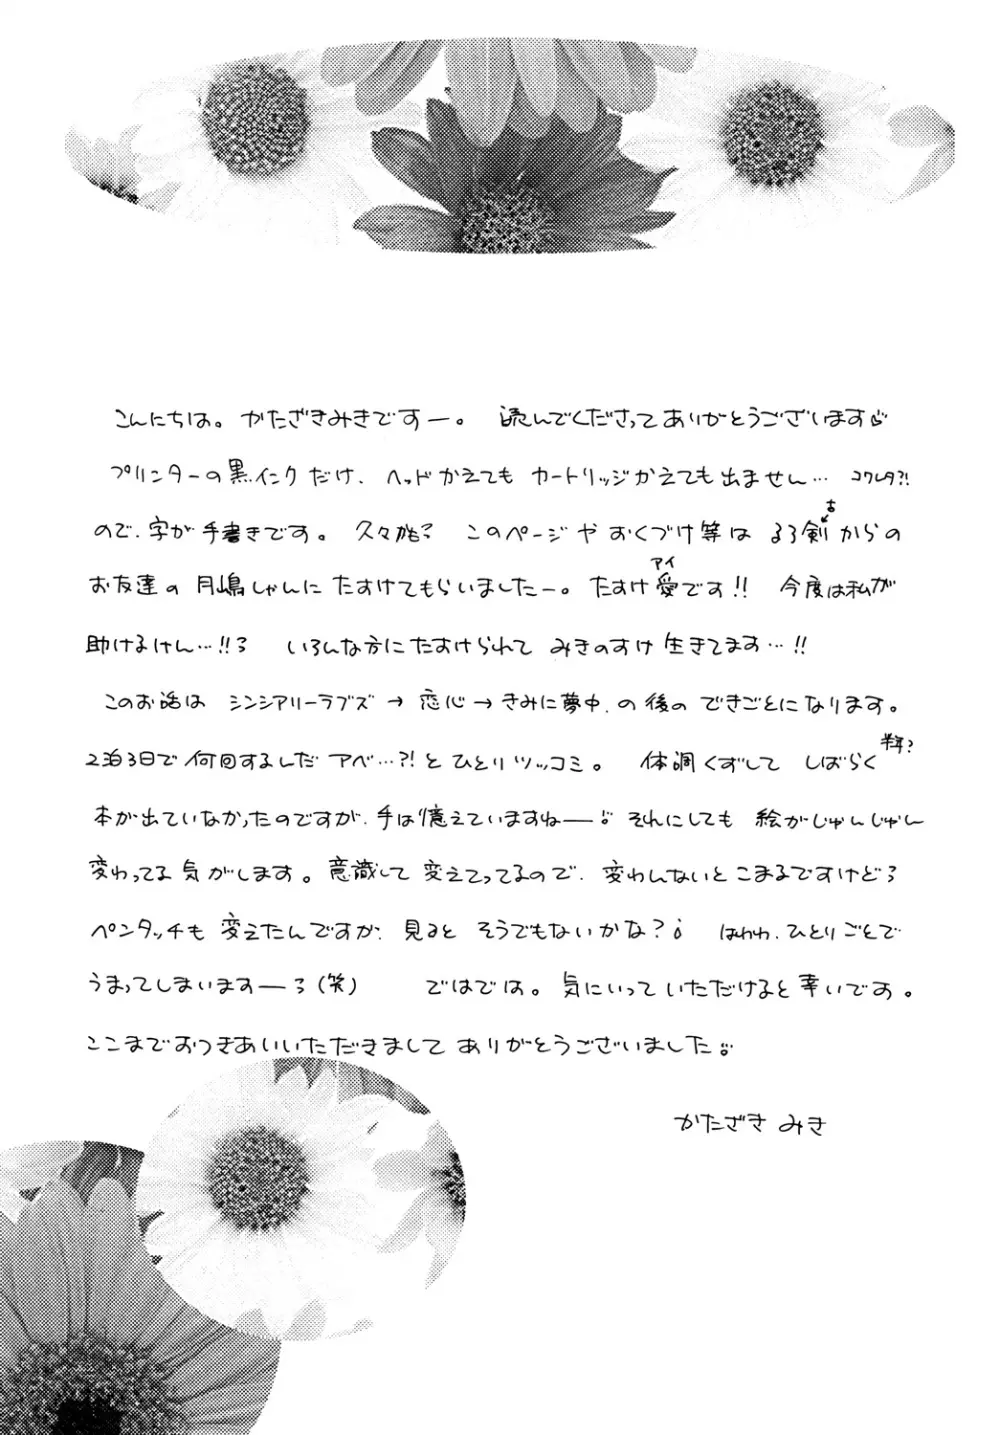 こんにちは。かたざきみきですー。 読んでくださってありがとうございます
プリンターの黒インクだけ、ヘッドかえても カートリッジかえても出ません… コワレタ?!
古
ので、字が手書きです。 久々 このページや おくづけ等は るろ剣からの
アイ
お友達の 月嶋しゃんに たすけてもらいましたー。たすけ愛です!! 今度は私が
助けるけん…!! いろんな方にたすけられて みきのすけ 生きてます…!!
このお話は シンシアリーラブズ → 恋心 → きみに夢中、の後の できごとになります。
半年?
2泊3日で 何回するしだ アベ…?! と ひとりツッコミ。 体調くずして しばらく
本が出ていなかったのですが、手は憶えていますねー それにしても 絵がじゅんじゅん
変わってる気がします。意識して 変えてってるので、変わんないと こまるですけど
ペンタッチも 変えたんですが、見ると そうでもないかな? はわわ、ひとりごとで
うまってしまいますー (笑) ではでは。気にいって いただけると幸いです。
ここまでおつきあいいただきまして ありがとうございました
かたざき みき